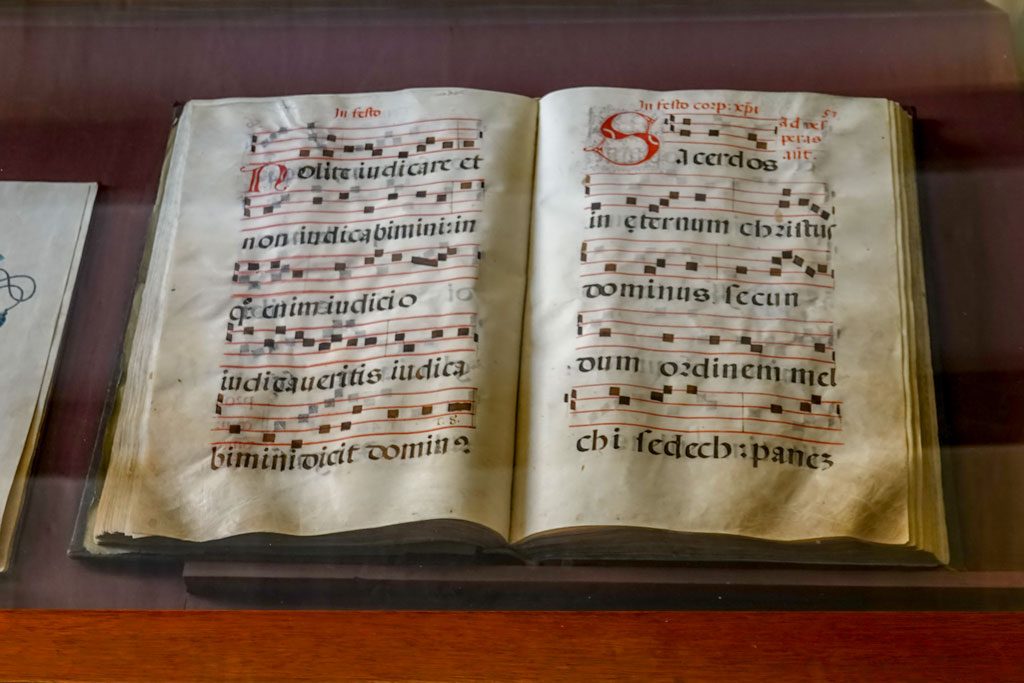 In festo
Nolite iudicare et
non iudicabimini: in
q° enim iudicio
iudicaueritis iudica
bimini dicit domin9
In festo corp: xp̄i 57
ad ves
peras
añt.
Sacerdos
in eternum christus
dominus secun
dum ordinem mel
chisedech: panez